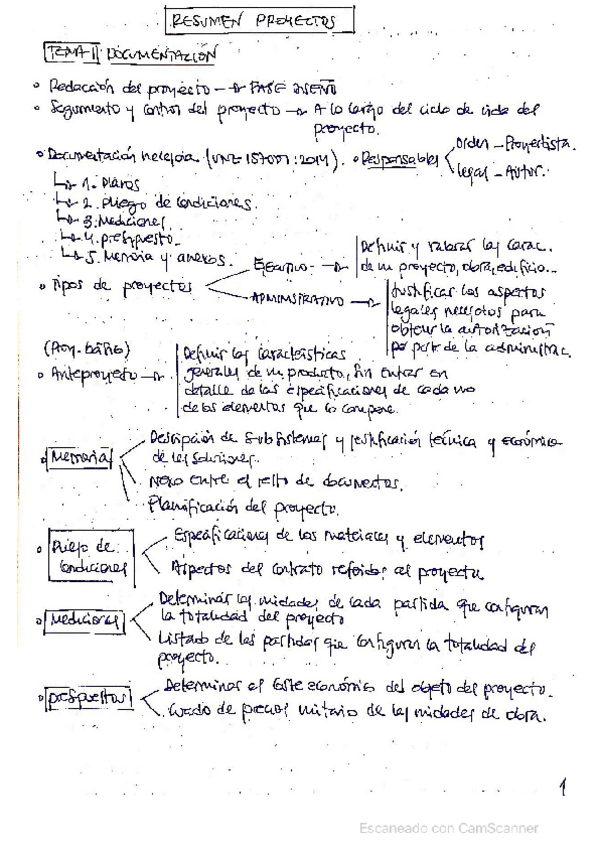 RESUMEN PROYECTOS
TEMA 1 | DOCUMENTACIÓN
Redacción del proyecto → FASE DISEÑO
Seguimiento y control del proyecto → A lo largo del ciclo de vida del
proyecto.
Documentación necesaria (UNE 157001:2014). Responsables
Orden - Proyectista.
Legal - Autor.
1. Planos
2. Pliego de condiciones.
3. Mediciones
4. presupuesto.
5. Memoria y anexos.
Tipos de proyectos
EJECUTIVO →
Definir y valorar las carac.
de un proyecto, obra, edificio...
ADMINISTRATIVO →
Justificar los aspectos
legales necesarios para
obtener la autorización
por parte de la administrac.
(Proy. básico)
Anteproyecto →
Definir las características
generales de un producto, sin entrar en
detalle de las especificaciones de cada uno
de los elementos que lo compone.
Memoria
Descripción de subsistemas y justificación técnica y económica
de las soluciones.
Nexo entre el resto de documentos.
Planificación del proyecto.
Pliego de
condiciones
Especificaciones de los materiales y elementos
Aspectos del contrato referidos al proyecto
Mediciones
Determinar las unidades de cada partida que configuran
la totalidad del proyecto
Listado de las partidas que configuran la totalidad del
proyecto.
presupuestos
Determinar el coste económico del objeto del proyecto.
Cuadro de precios unitario de las unidades de obra.
1
Escaneado con CamScanner